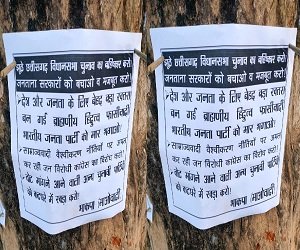 झूठे छत्तीसगढ़ विधानसभा चुनाव का बहिष्कार करो!
जनताना सरकारों को बचाओ व मजबूत करो!
• देश और जनता के लिए बेहद बड़ा खतरा
बन गई ब्राह्मणीय हिंदुत्व फासीवादी
भारतीय जनता पार्टी को मार भगाओ!
• साम्राज्यवादी वैश्वीकरण नीतियों पर अमल
कर रही जन विरोधी कांग्रेस का विरोध करो!
• वोट मांगने आने वाली अन्य चुनावी पार्टियों
को कटघरे में खड़ा करो!
भाकपा (माओवादी)
झूठे छत्तीसगढ़ विधानसभा चुनाव का बहिष्कार करो!
जनताना सरकारों को बचाओ व मजबूत करो!
• देश और जनता के लिए बेहद बड़ा खतरा
बन गई ब्राह्मणीय हिंदुत्व फासीवादी
भारतीय जनता पार्टी को मार भगाओ!
• साम्राज्यवादी वैश्वीकरण नीतियों पर अमल
कर रही जन विरोधी कांग्रेस का विरोध करो!
• वोट मांगने आने वाली अन्य चुनावी पार्टियों
को कटघरे में खड़ा करो!
भाकपा (माओवादी)